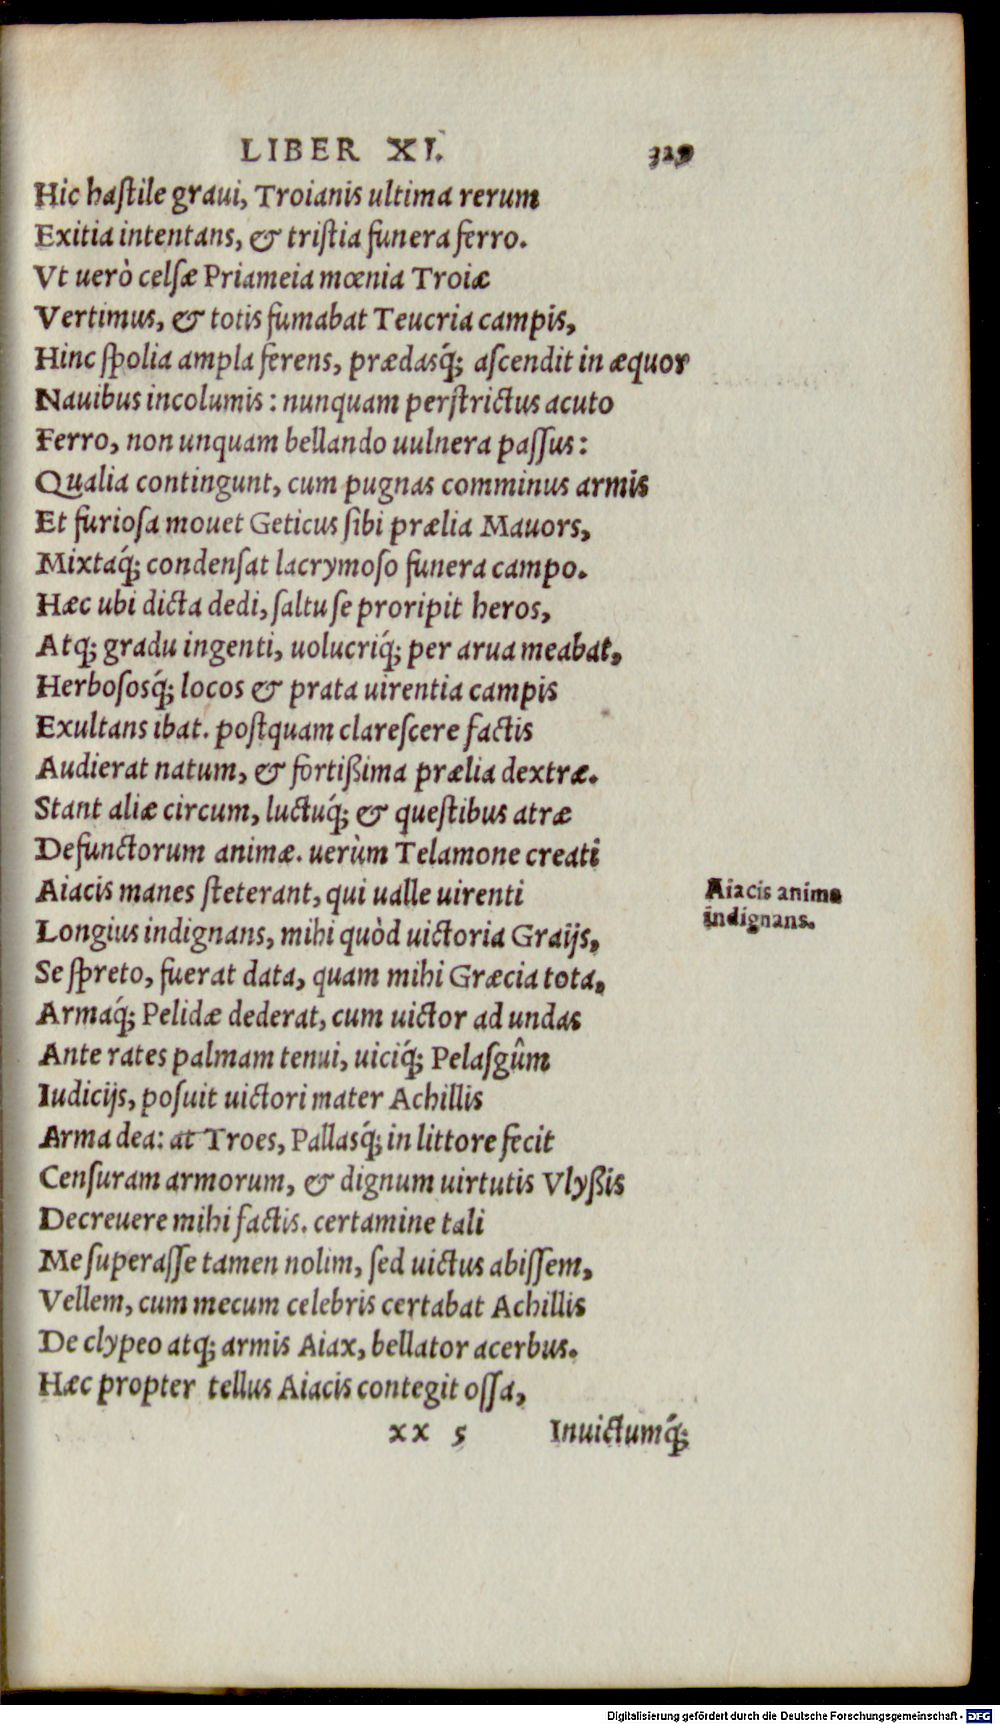 LIBER XI. 329
Hic haſtile graui, Troianis ultima rerum
Exitia intentans, & triſtia funera ferro.
Vt uerò celſæ Priameia mœnia Troiæ
Vertimus, & totis fumabat Teucria campis,
Hinc ſpolia ampla ferens, prædasq́; aſcendit in æquor
Nauibus incolumis: nunquam perſtrictus acuto
Ferro, non unquam bellando uulnera paſſus:
Qualia contingunt, cum pugnas comminus armis
Et furioſa mouet Geticus ſibi prælia Mauors,
Mixtaq́; condenſat lacrymoſo funera campo.
Hæc ubi dicta dedi, ſaltu ſe proripit heros,
Atq; gradu ingenti, uolucriq́; per arua meabat,
Herboſosq́; locos & prata uirentia campis
Exultans ibat. poſtquam clareſcere factis
Audierat natum, & fortißima prælia dextræ.
Stant aliæ circum, luctuq́; & queſtibus atræ
Defunctorum animæ. uerùm Telamone creati
Aiacis manes ſteterant, qui ualle uirenti
Aiacis anima
indignans.
Longius indignans, mihi quòd uictoria Graijs,
Se ſpreto, fuerat data, quam mihi Græcia tota,
Armaq́; Pelidæ dederat, cum uictor ad undas
Ante rates palmam tenui, uiciq́; Pelaſgûm
Iudicijs, poſuit uictori mater Achillis
Arma dea: at Troes, Pallasq́; in littore fecit
Cenſuram armorum, & dignum uirtutis Vlyßis
Decreuere mihi factis. certamine tali
Me ſuperaſſe tamen nolim, ſed uictus abiſſem,
Vellem, cum mecum celebris certabat Achillis
De clypeo atq; armis Aiax, bellator acerbus.
Hæc propter tellus Aiacis contegit oſſa,
xx 5 Inuictumq́;
Digitalisierung gefördert durch die Deutsche Forschungsgemeinschaft - DFG